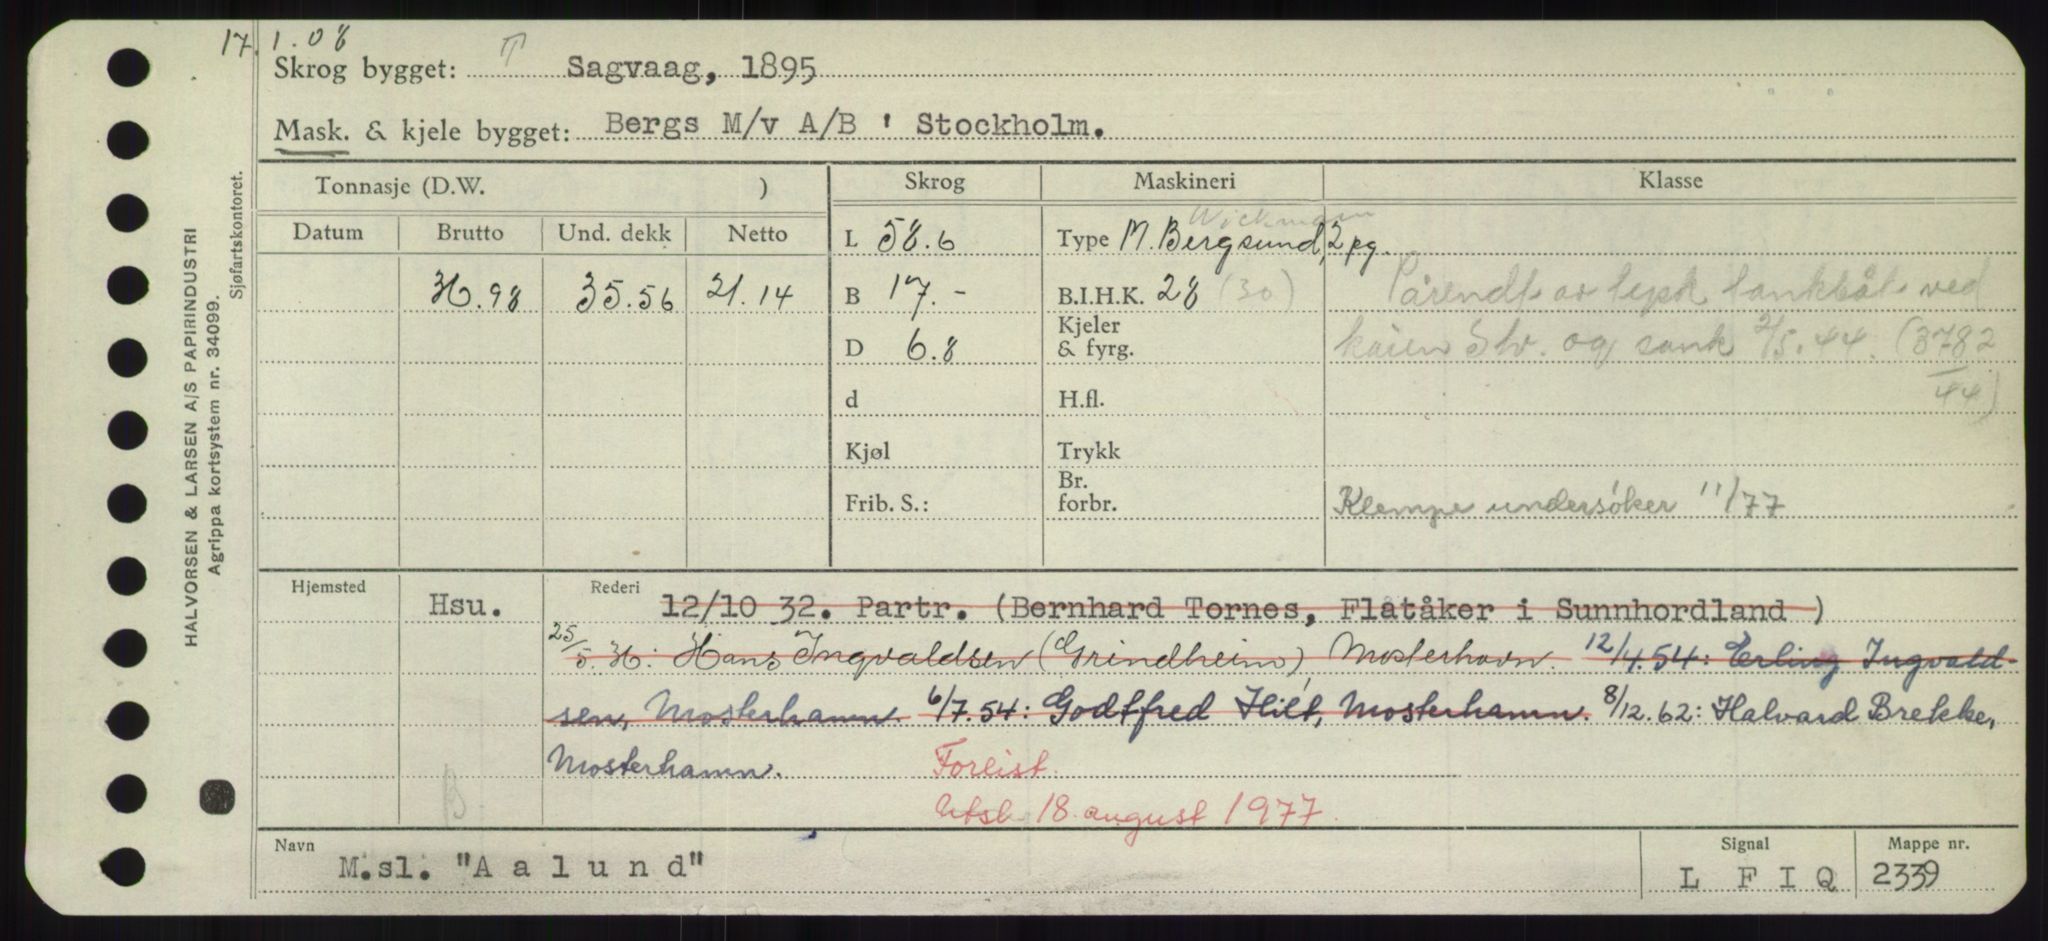 17. 1.08
Skrog bygget: T Sagvaag, 1895
Mask. & kjele bygget: Bergs M/v A/B ' Stockholm.
Tonnasje (D.W. ) Skrog Maskineri Klasse
Wickmann
Datum Brutto Und. dekk Netto L 58.6 Type M. Bergsund, 2 pg.
36.98 35.56 21.14 B 17.- B.I.H.K. 28 (30) Pårendt av tysk tankbåt ved
D 6.8 Kjeler & fyrg. kaien Stv. og sank 2/5.44. (3782
d H.fl. 44)
Kjøl Trykk
Frib. S.: Br. forbr. Klempe undersöker 11/77
Hjemsted Hsu. Rederi 12/10 32. Partr. (Bernhard Tornes, Flatåker i Sunnhordland )
25/5.36: Hans Ingvaldsen (Grindheim) Mosterhavn. 12/4.54: Erling Ingvald-
sen, Mosterhamn. 6/7.54: Godtfred Hilt, Mosterhamn. 8/12.62: Halvard Brekke,
Mosterhamn. Forlist.
B. Utsl. 18. august 1977.
Navn M.sl. "Aalund" Signal L F I Q Mappe nr. 2339
HALVORSEN & LARSEN A/S PAPIRINDUSTRI
Agrippa kortsystem nr. 34099.
Sjøfartskontoret.